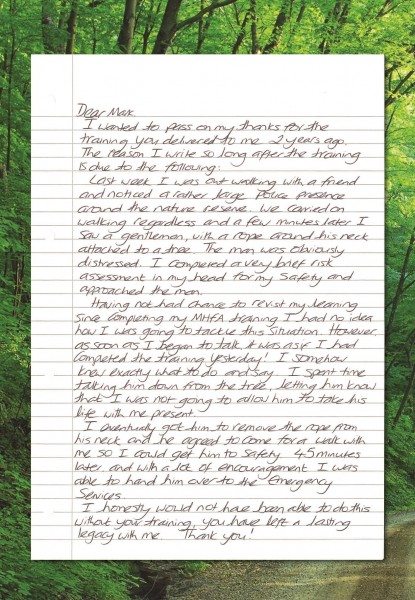 Dear Mark.
I wanted to pass on my thanks for the
training you delivered to me 2 years ago.
The reason I write so long after the training
is due to the following:
Last week I was out walking with a friend
and noticed a rather large Police presence
around the nature reserve. We carried on
walking regardless and a few minutes later I
saw a gentleman, with a rope around his neck
attached to a tree. The man was obviously
distressed. I completed a very brief risk
assessment in my head for my safety and
approached the man.
Having not had chance to revist my learning
since completing my MHFA training I had no idea
how I was going to tackle this situation. However,
as soon as I began to talk it was as if I had
completed the training yesterday! I somehow
knew exactly what to do and say. I spent time
talking him down from the tree, letting him know
that I was not going to allow him to take his
life with me present.
I eventually got him to remove the rope from
his neck and he agreed to come for a walk with
me so I could get him to safety. 45 minutes
later, and with a lot of encouragement I was
able to hand him over to the Emergency
Services
I honestly would not have been able to do this
without your training, you have left a lasting
legacy with me. Thank you!